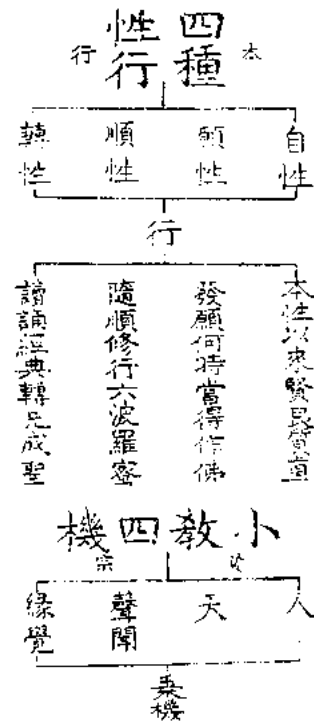 四種
性行
本
行
自性
願性
順性
轉性
行
本性以來賢良質直
發願何時當得作佛
隨順修行六波羅蜜
讀誦經典轉凡成聖
小教四機
宗
人
天
聲聞
緣覺
乘機